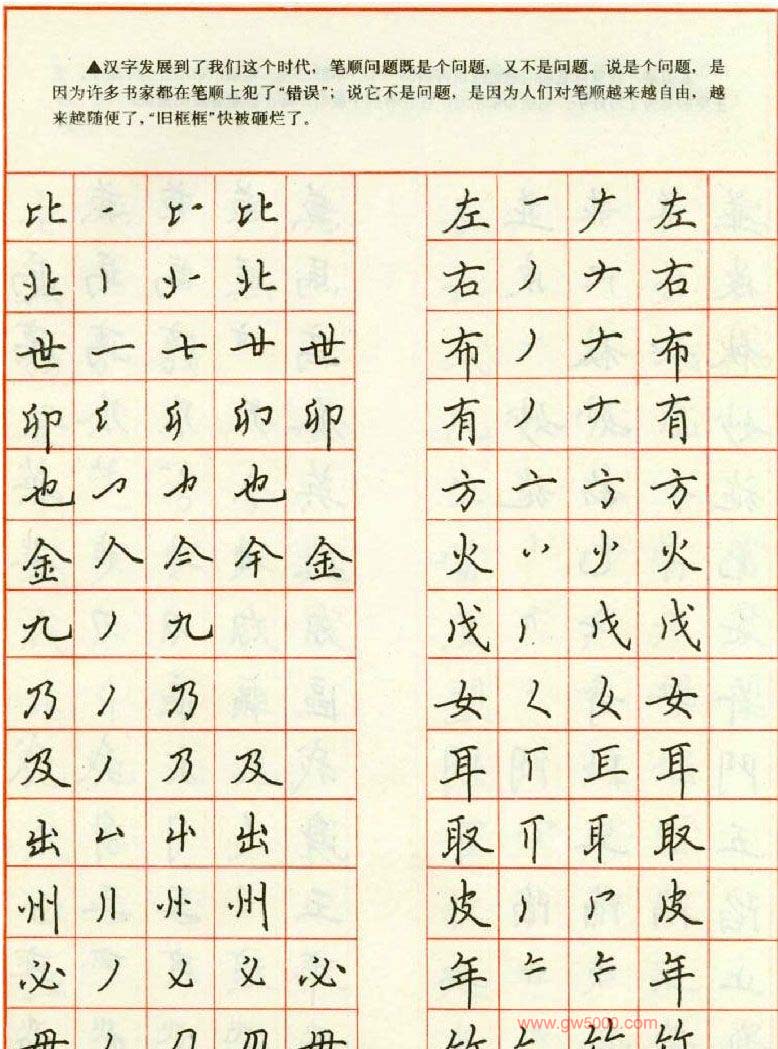 ▲汉字发展到了我们这个时代，笔顺问题既是个问题，又不是问题。说是个问题，是
因为许多书家都在笔顺上犯了“错误”；说它不是问题，是因为人们对笔顺越来越自由，越
来越随便了，“旧框框”快被砸烂了。
比 比 左 一 左
北 丿 北 右 丿 右
世 一 世 布 丿 布
卯 卯 有 丿 有
也 也 方 亠 方 方
金 人 金 火 火
九 丿 九 戊 戊
乃 丿 乃 女 女
及 丿 乃 及 耳 耳
出 出 取 耳 取
州 州 皮 皮
必 丿 必 年 年
www.gw5000.com